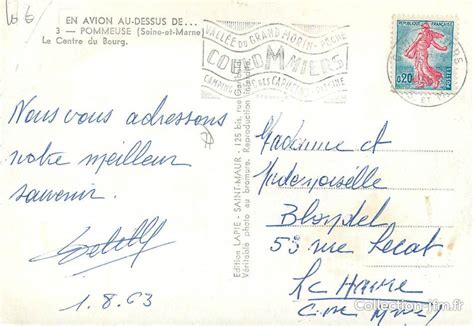 EN AVION AU-DESSUS DE...
3 - POMMEUSE (Seine-et-Marne)
Le Centre du Bourg.
VALLÉE DU GRAND MORIN - PÊCHE
COULOMMIERS
CAMPING
RÉPUBLIQUE FRANÇAISE
0,20
POSTES
Nous vous adressons
notre meilleur
souvenir.
1.8.63
Edition LAPIE - SAINT-MAUR - 125 bis, rue
Véritable photo au bromure. Reproduction interdite.
Madame et
Mademoiselle
Blondel
53 rue Lecat
Le Havre
Collection-jfm.fr